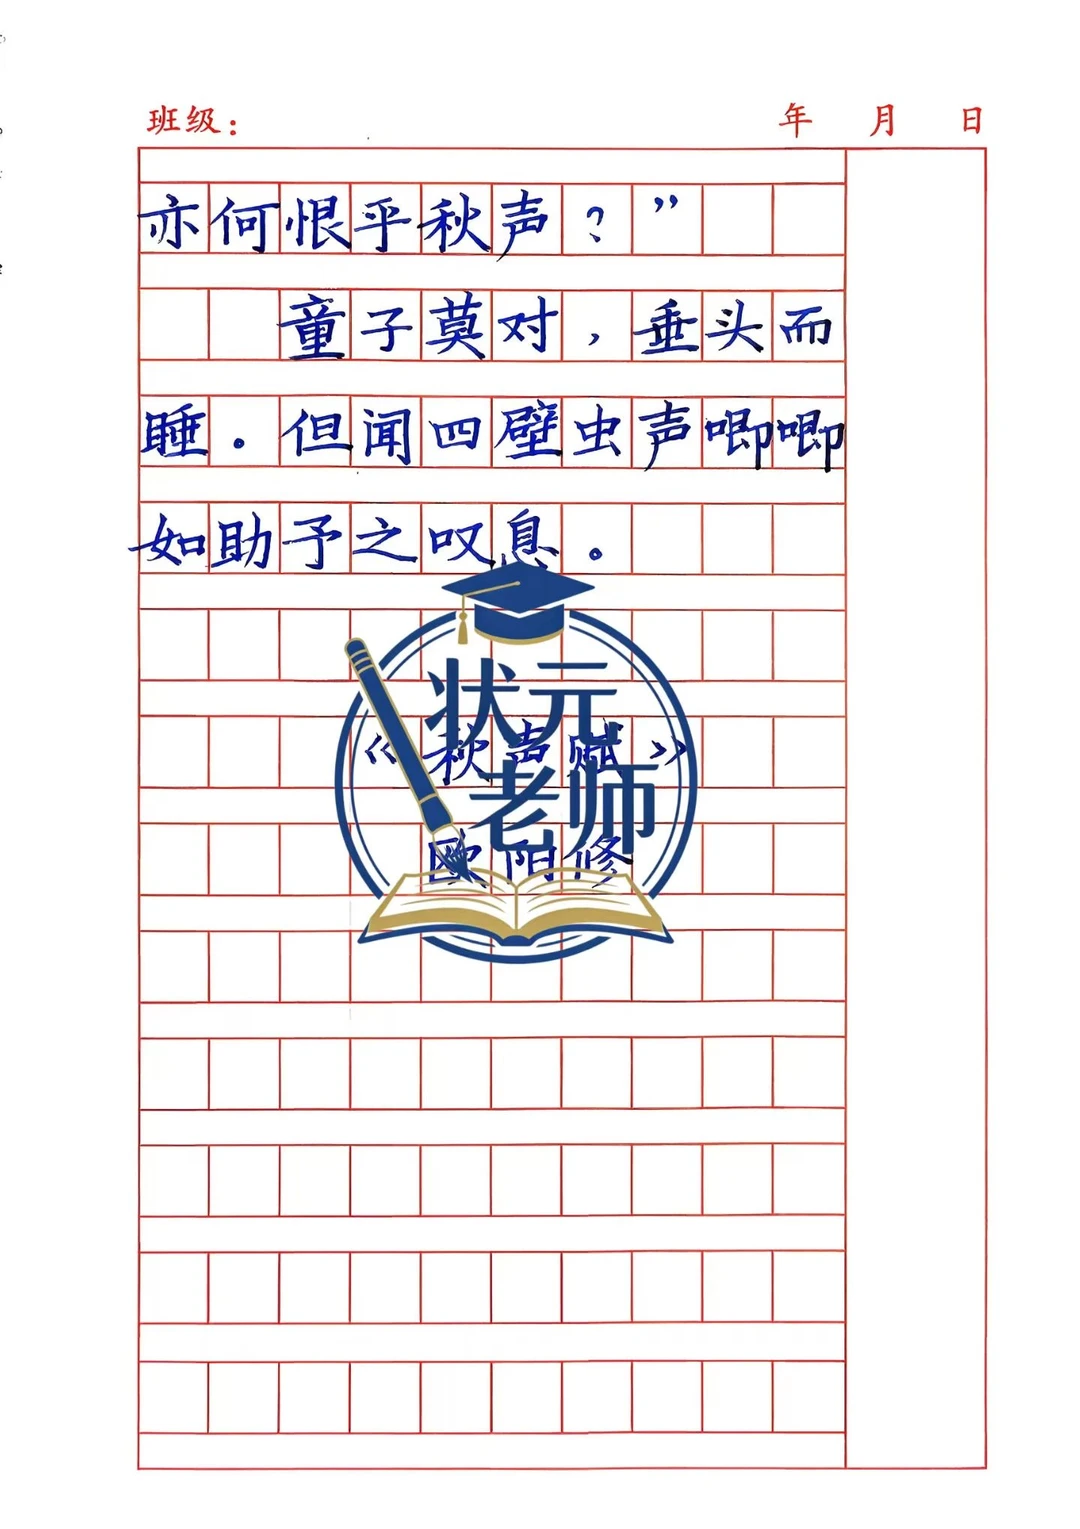 班级： 年 月 日
亦何恨乎秋声？”
童子莫对，垂头而
睡。但闻四壁虫声唧唧
如助予之叹息。
状元
《秋声赋》
老师
欧阳修